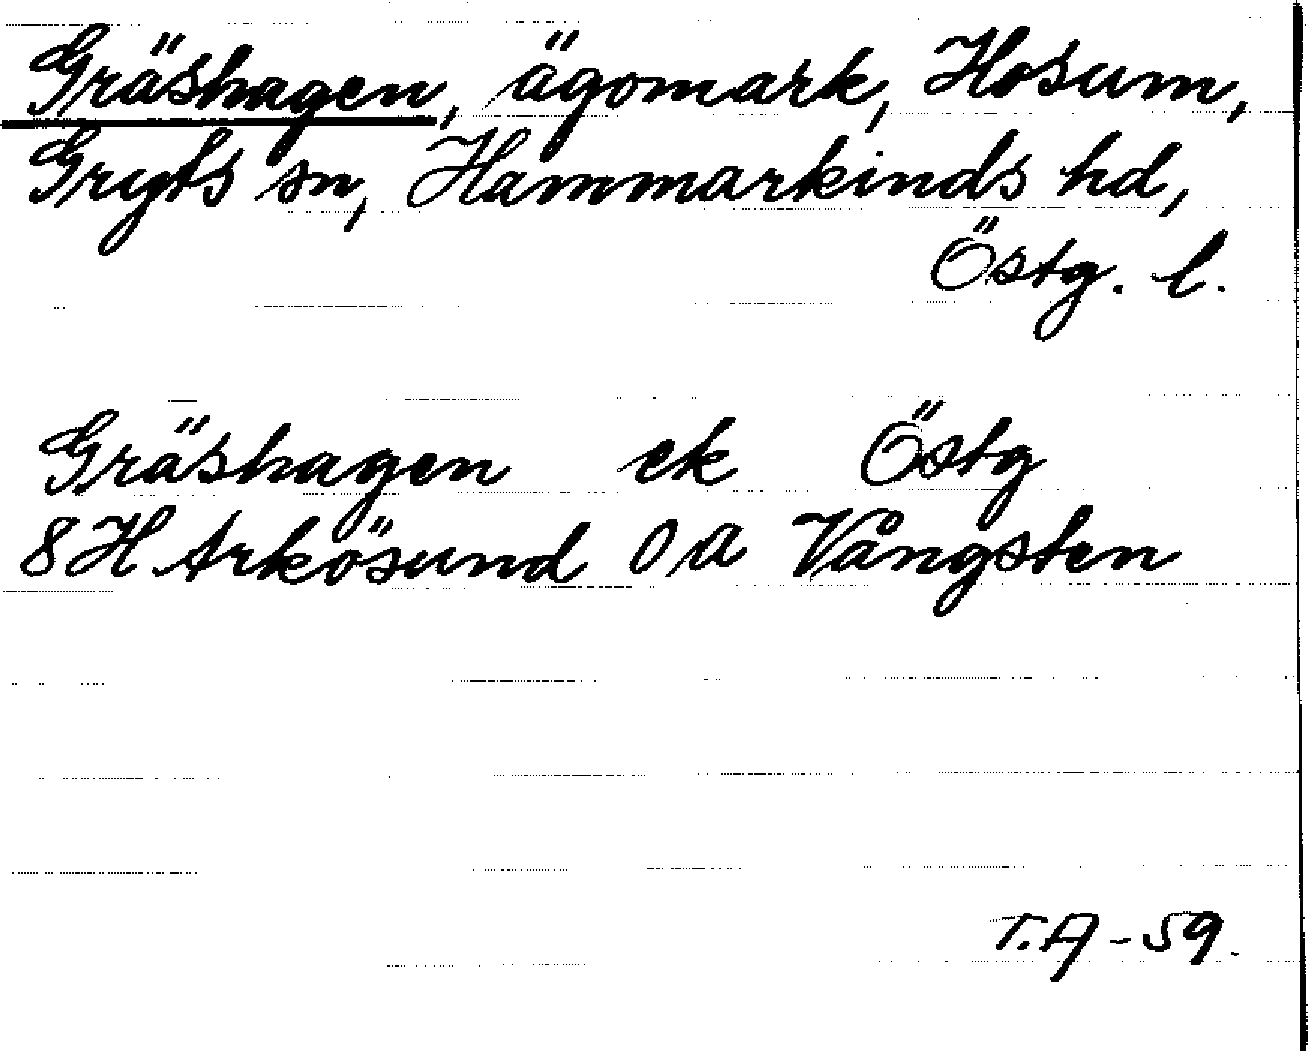 Gräshagen, ägomark, Hosum,
Gryts sn, Hammarkinds hd,
Östg. l.
Gräshagen ek Östg
8H Arkösund 0 a Vångsten
T.A-59.